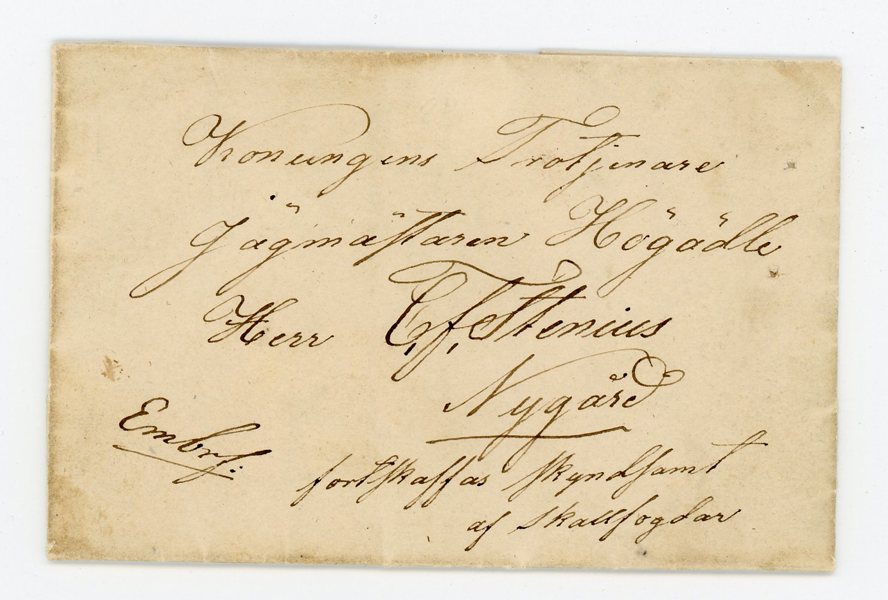 Konungens Trotjenare
Jägmästaren Högädle
Herr C, f, Stenius
Nygård
Embrf:
fortskaffas skyndsamt
af skallfogdar